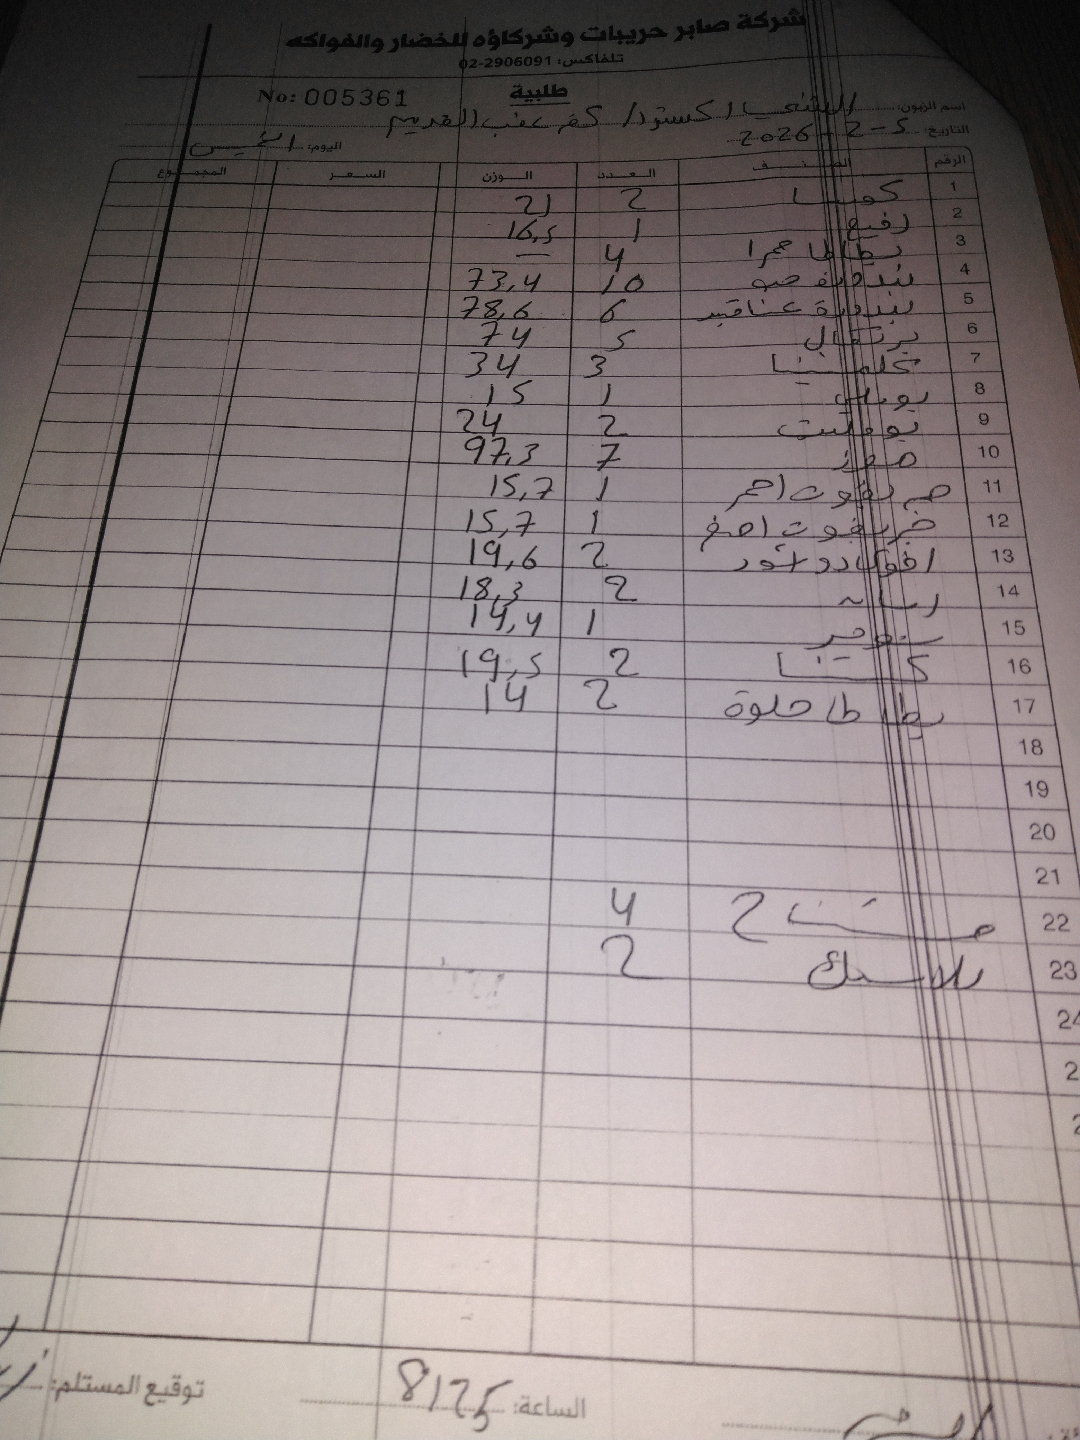 شركة صابر حريبات وشركاؤه للخضار والفواكه
تلفاكس: 02-2906091
طلبية
No: 005361
اسم الزبون: الشني اكسترا/ كفر عقب القديم
التاريخ: 5-2-2026 اليوم: الخميس
الرقم الصنف العدد الوزن السعر المجموع
1 كوسا 2 21
2 رفيع 1 16,5
3 بطاطا حمرا 4 —
4 بندورة حبو 10 73,4
5 بندورة عناقيد 6 78,6
6 برتقال 5 74
7 كلمنتينا 3 34
8 بوملي 1 15
9 بوملیت 2 24
10 موز 7 97,3
11 جريفوت احمر 1 15,7
12 جريفوت اصفر 1 15,7
13 افوكادو اتور 2 19,6
14 2 18,3
15 1 14,4
16 كستنا 2 19,5
17 بطاطا حلوة 2 14
18
19
20
21
22 مشتاح 4
23 بلاستك 2
24
2
2
الساعة: 8:25 توقيع المستلم: